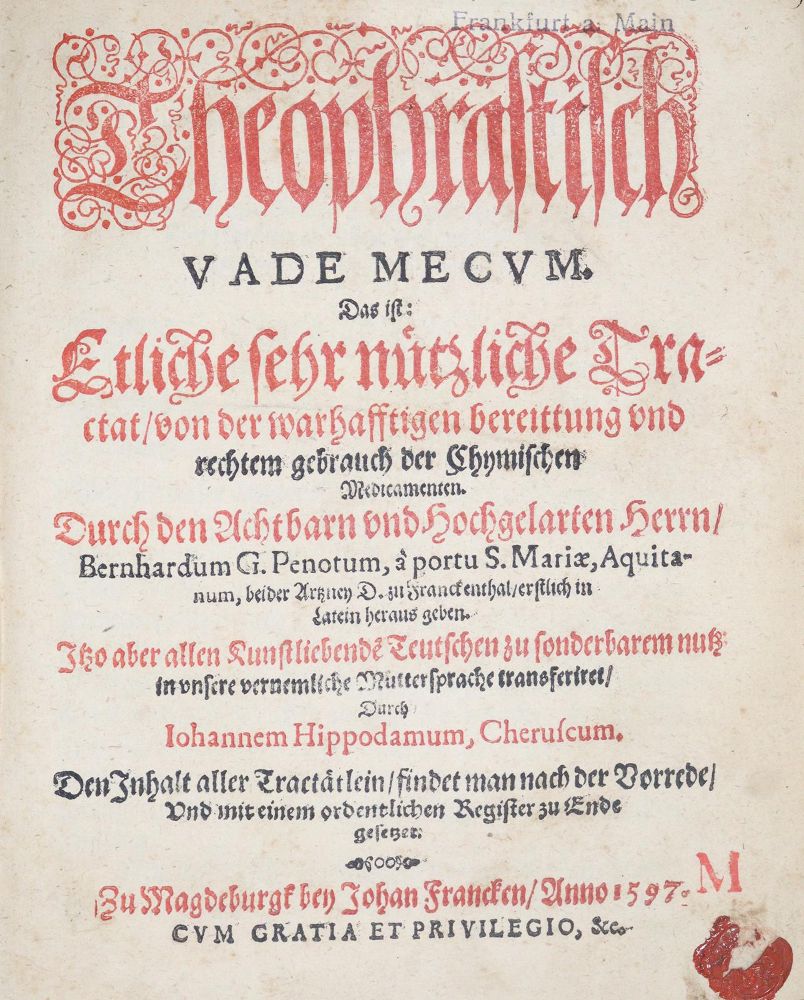 Frankfurt a. Main
Theophrastisch
VADE MECVM.
Das ist:
Etliche sehr nuͤtzliche Tra-
ctat/von der warhafftigen bereittung vnd
rechtem gebrauch der Chymischen
Medicamenten.
Durch den Achtbarn vnd Hochgelarten Herrn/
Bernhardum G. Penotum, à portu S. Mariæ, Aquita-
num, beider Artzney D. zu Franckenthal/erstlich in
Latein heraus geben.
Itzo aber allen Kunstliebendẽ Teutschen zu sonderbarem nutz
in vnsere vernemliche Muttersprache transferiret/
Durch
Iohannem Hippodamum, Cheruſcum.
Den Inhalt aller Tractätlein/findet man nach der Vorrede/
Vnd mit einem ordentlichen Register zu Ende
gesetzet.
Zu Magdeburgk bey Johan Francken/Anno 1597.
M
CVM GRATIA ET PRIVILEGIO, &c.